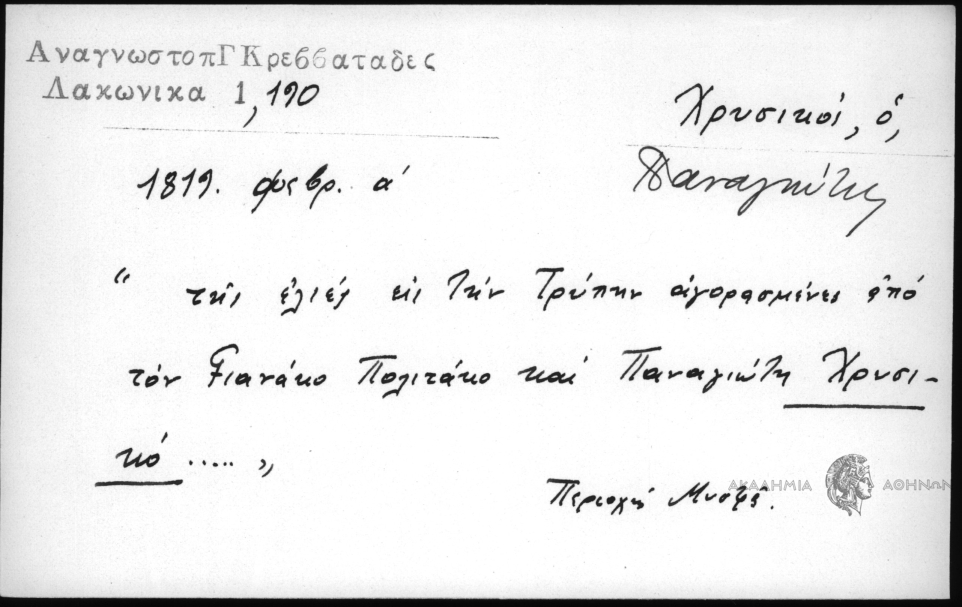 ΑναγνωστοπΓΚρεββαταδες
Λακωνικα 1,190
Χρυσικός, ὁ,
Παναγιώτης
1819. φεβρ. α΄
“ τῆς ἐλιές εἰς τὴν Τρύπην ἀγορασμένες ἀπό
τόν Γιανάκο Πολιτάκο καί Παναγιώτη Χρυσι-
κό ..... „
Περιοχή Μυστρᾶ.
ΑΚΑΔΗΜΙΑ ΑΘΗΝΩΝ